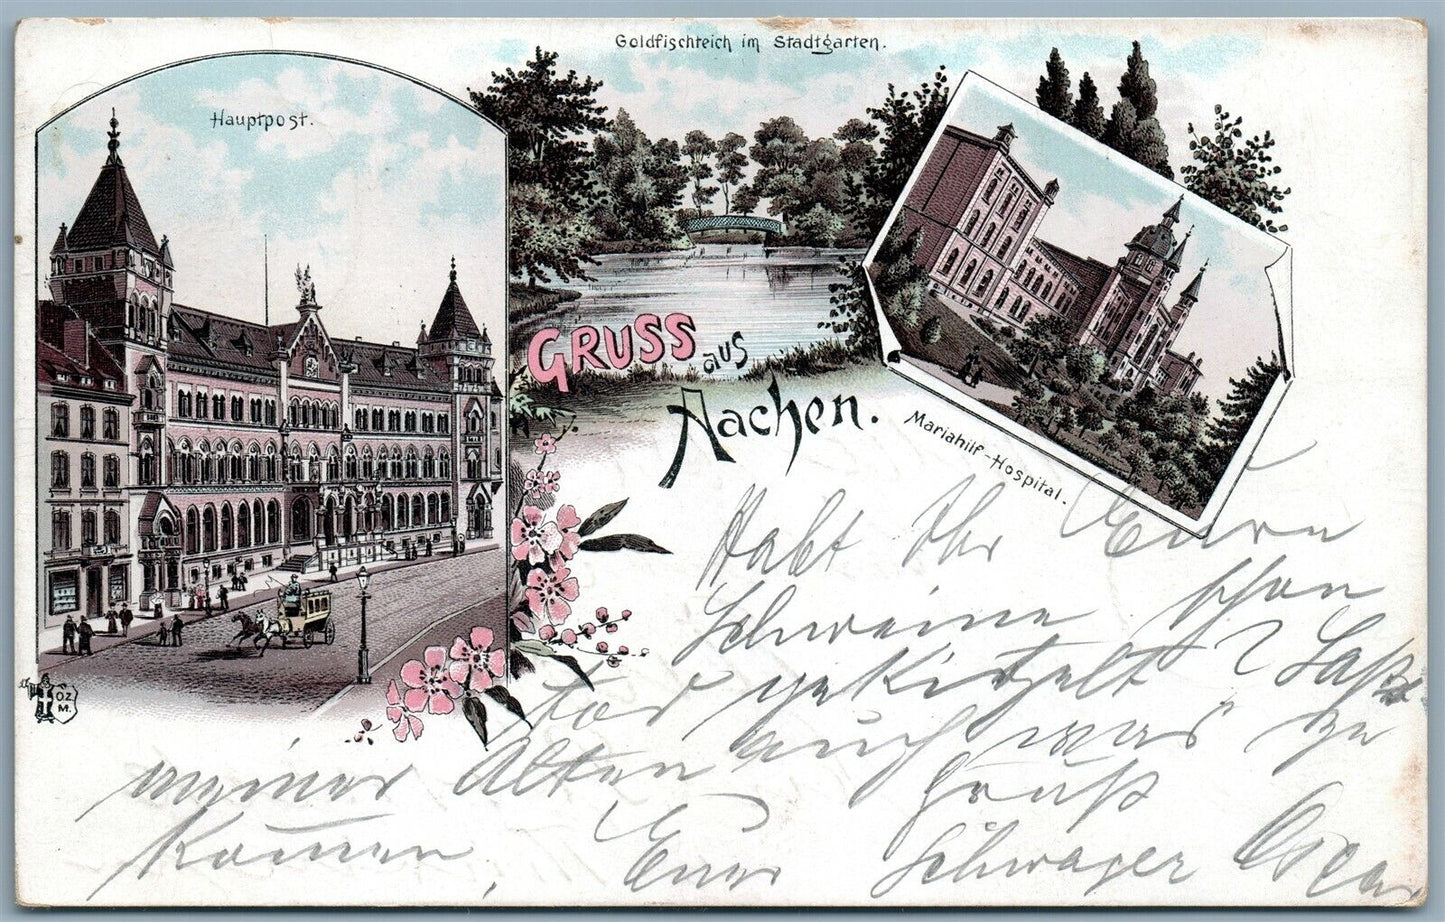 Goldfischteich im Stadtgarten.
Hauptpost.
GRUSS aus
Aachen.
Mariahilf-Hospital.
OZ
M.
Habt Ihr Eure
Schweine schon
tod gekitzelt? Laßt
meiner Alten auch was zu
kommen, Gruß
Euer Schwager Oscar